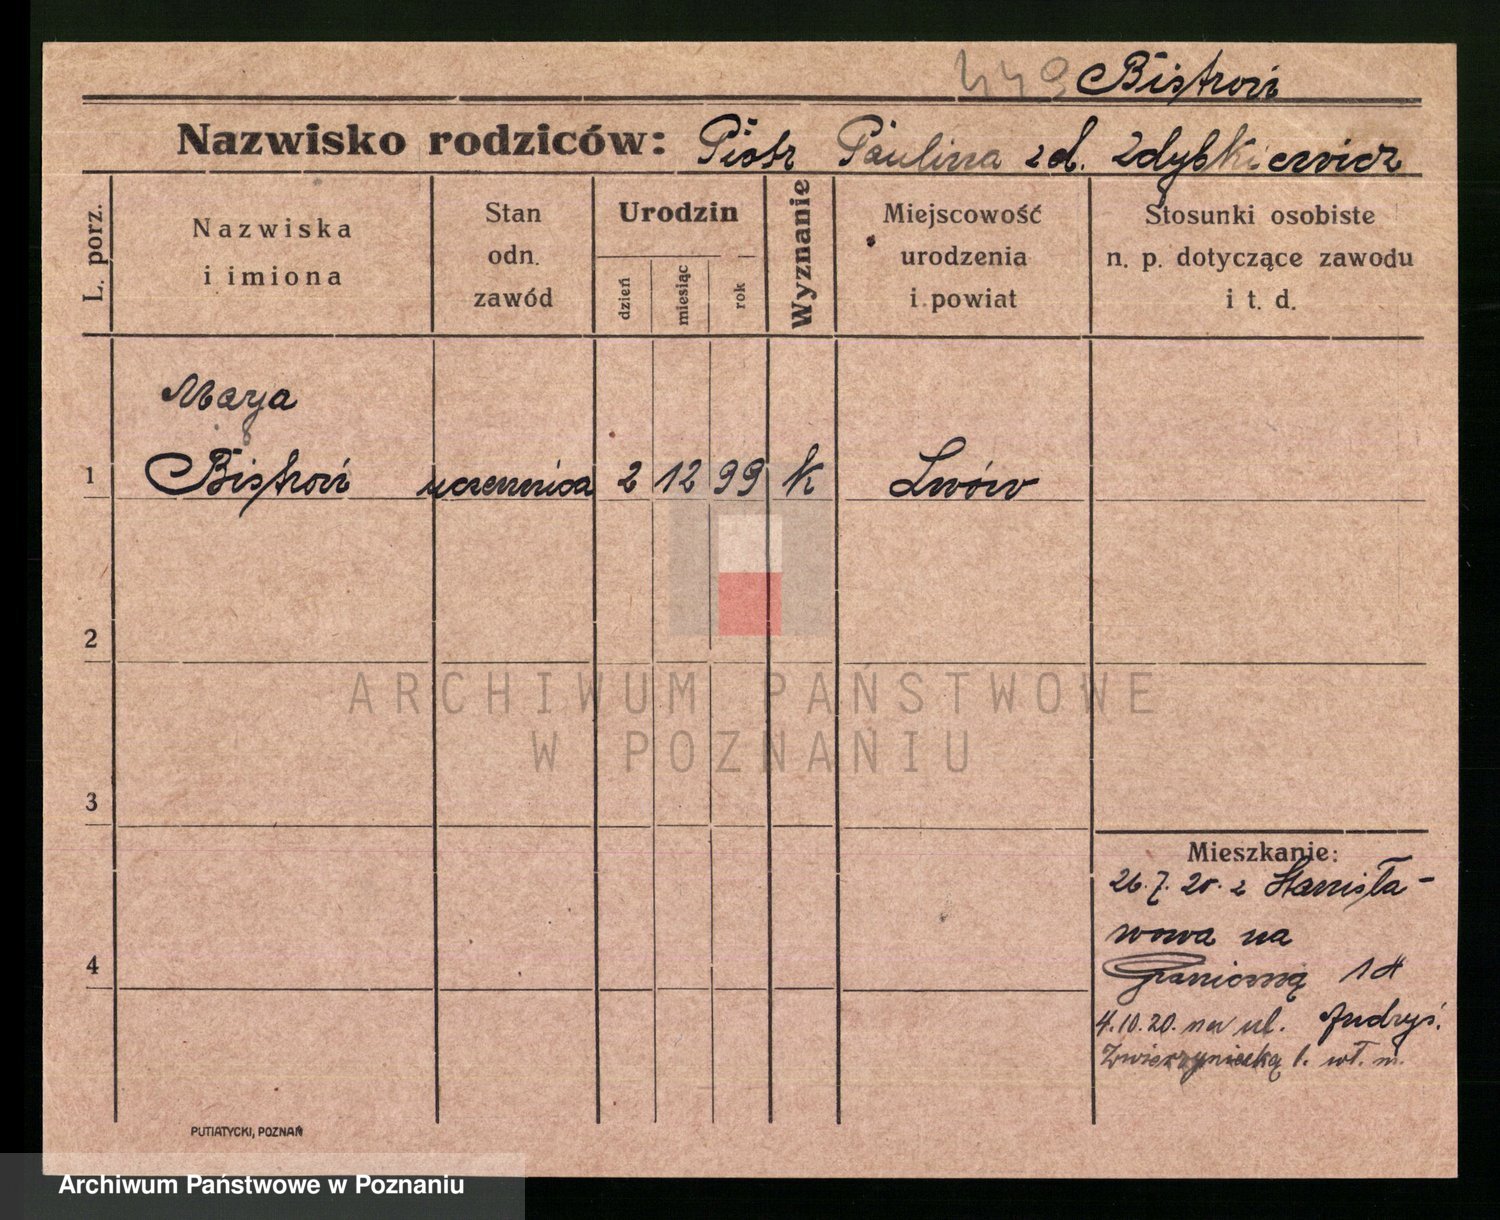 449 Bistroń
Nazwisko rodziców: Piotr Paulina zd. Zdybkiewicz
L. porz.
Nazwiska
i imiona
Stan
odn.
zawód
Urodzin
dzień
miesiąc
rok
Wyznanie
Miejscowość
urodzenia
i powiat
Stosunki osobiste
n. p. dotyczące zawodu
i t. d.
Marja
1 Bistroń uczennica 2 12 99 k Lwów
2
ARCHIWUM PAŃSTWOWE
W POZNANIU
3
4
Mieszkanie:
26.7.20. z Stanisła-
wowa na
Graniczną 14
4.10.20. na ul. Judryś.
Zwierzyniecką 1. wł. m.
PUTIATYCKI, POZNAŃ
Archiwum Państwowe w Poznaniu